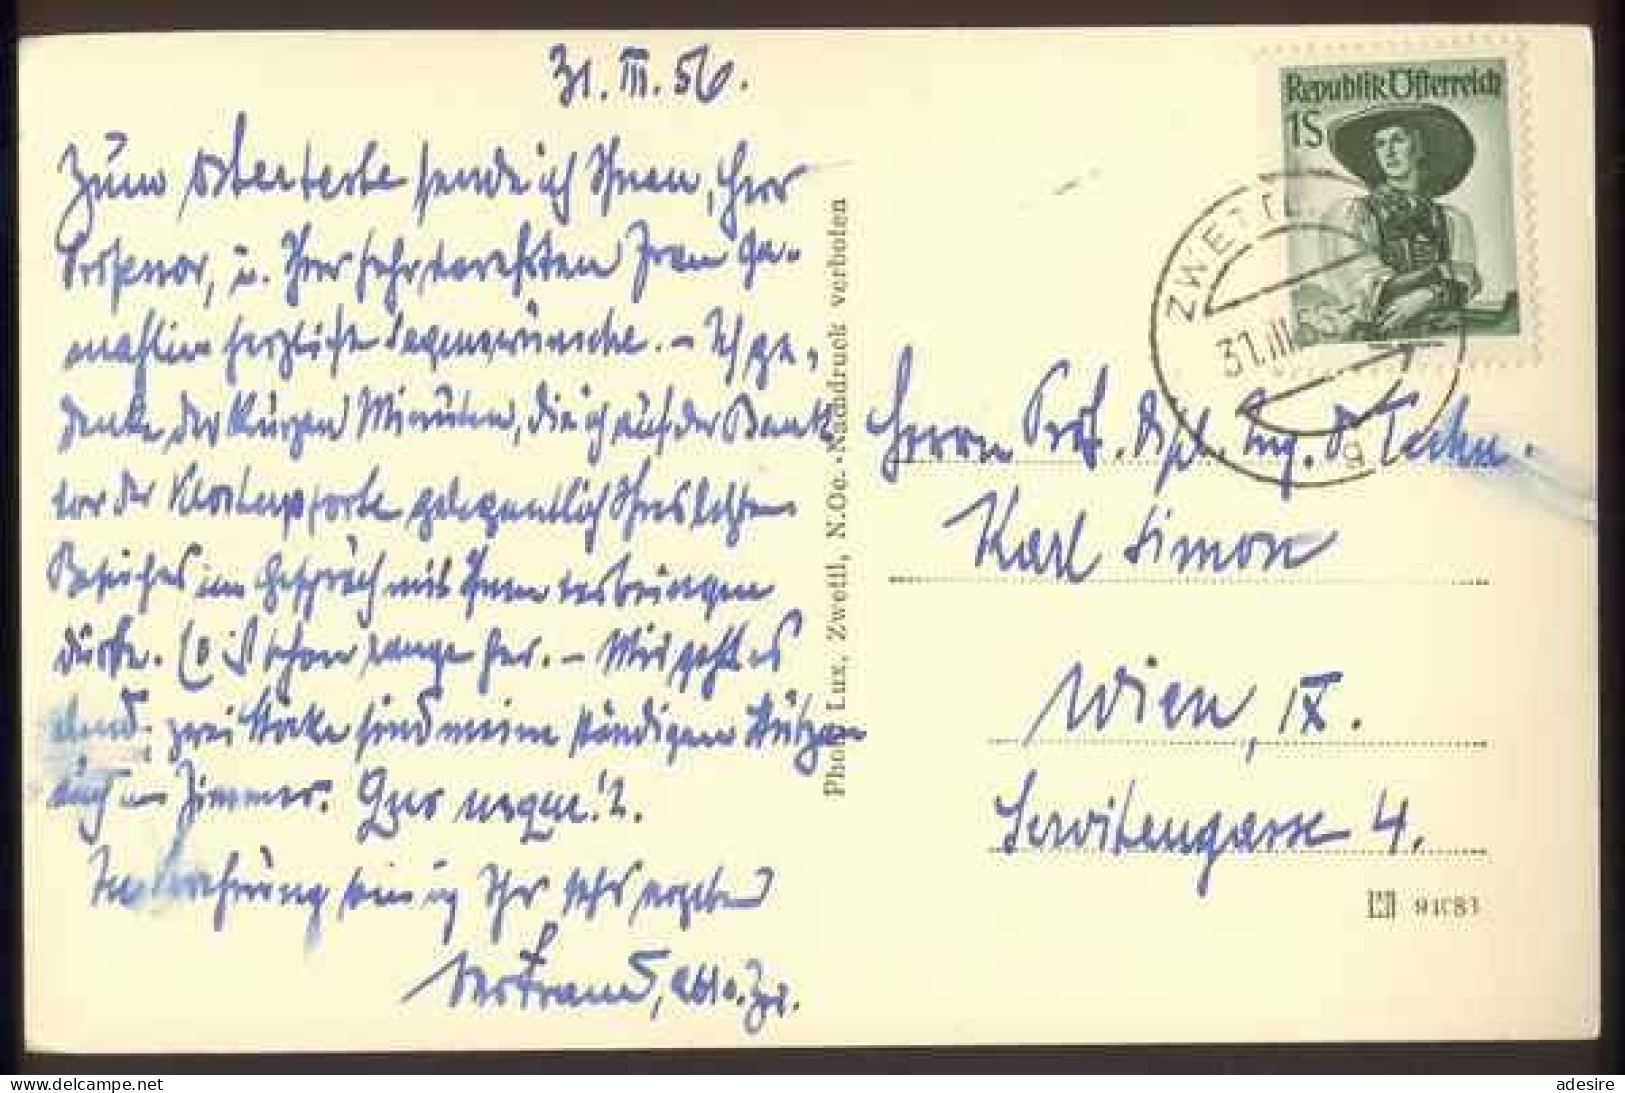 31. III. 56.
Zum Osterfeste sende ich Ihnen, Herr
Professor, u. Ihrer sehr verehrten Frau Ge-
mahlin herzliche Segenswünsche. – Ich ge-
denke der kurzen Minuten, die ich auf der Bank
vor der Klosterpforte gelegentlich Ihres letzten
Besuches im Gespräch mit Ihnen verbringen
durfte. Es ist schon lange her. – Mir geht es
zwei Stöcke sind meine ständigen Stützen
auch im Zimmer.
In Verehrung bin ich Ihr sehr ergebener
Bertrand, Abt v. Zw.
Photo Lux, Zwettl, N.Oe. - Nachdruck verboten
Republik Österreich
1S
ZWETTL
31.III
a
Herrn Prof. Dipl. Ing. D. Techn.
Karl Simon
Wien, IX.
Servitengasse 4.